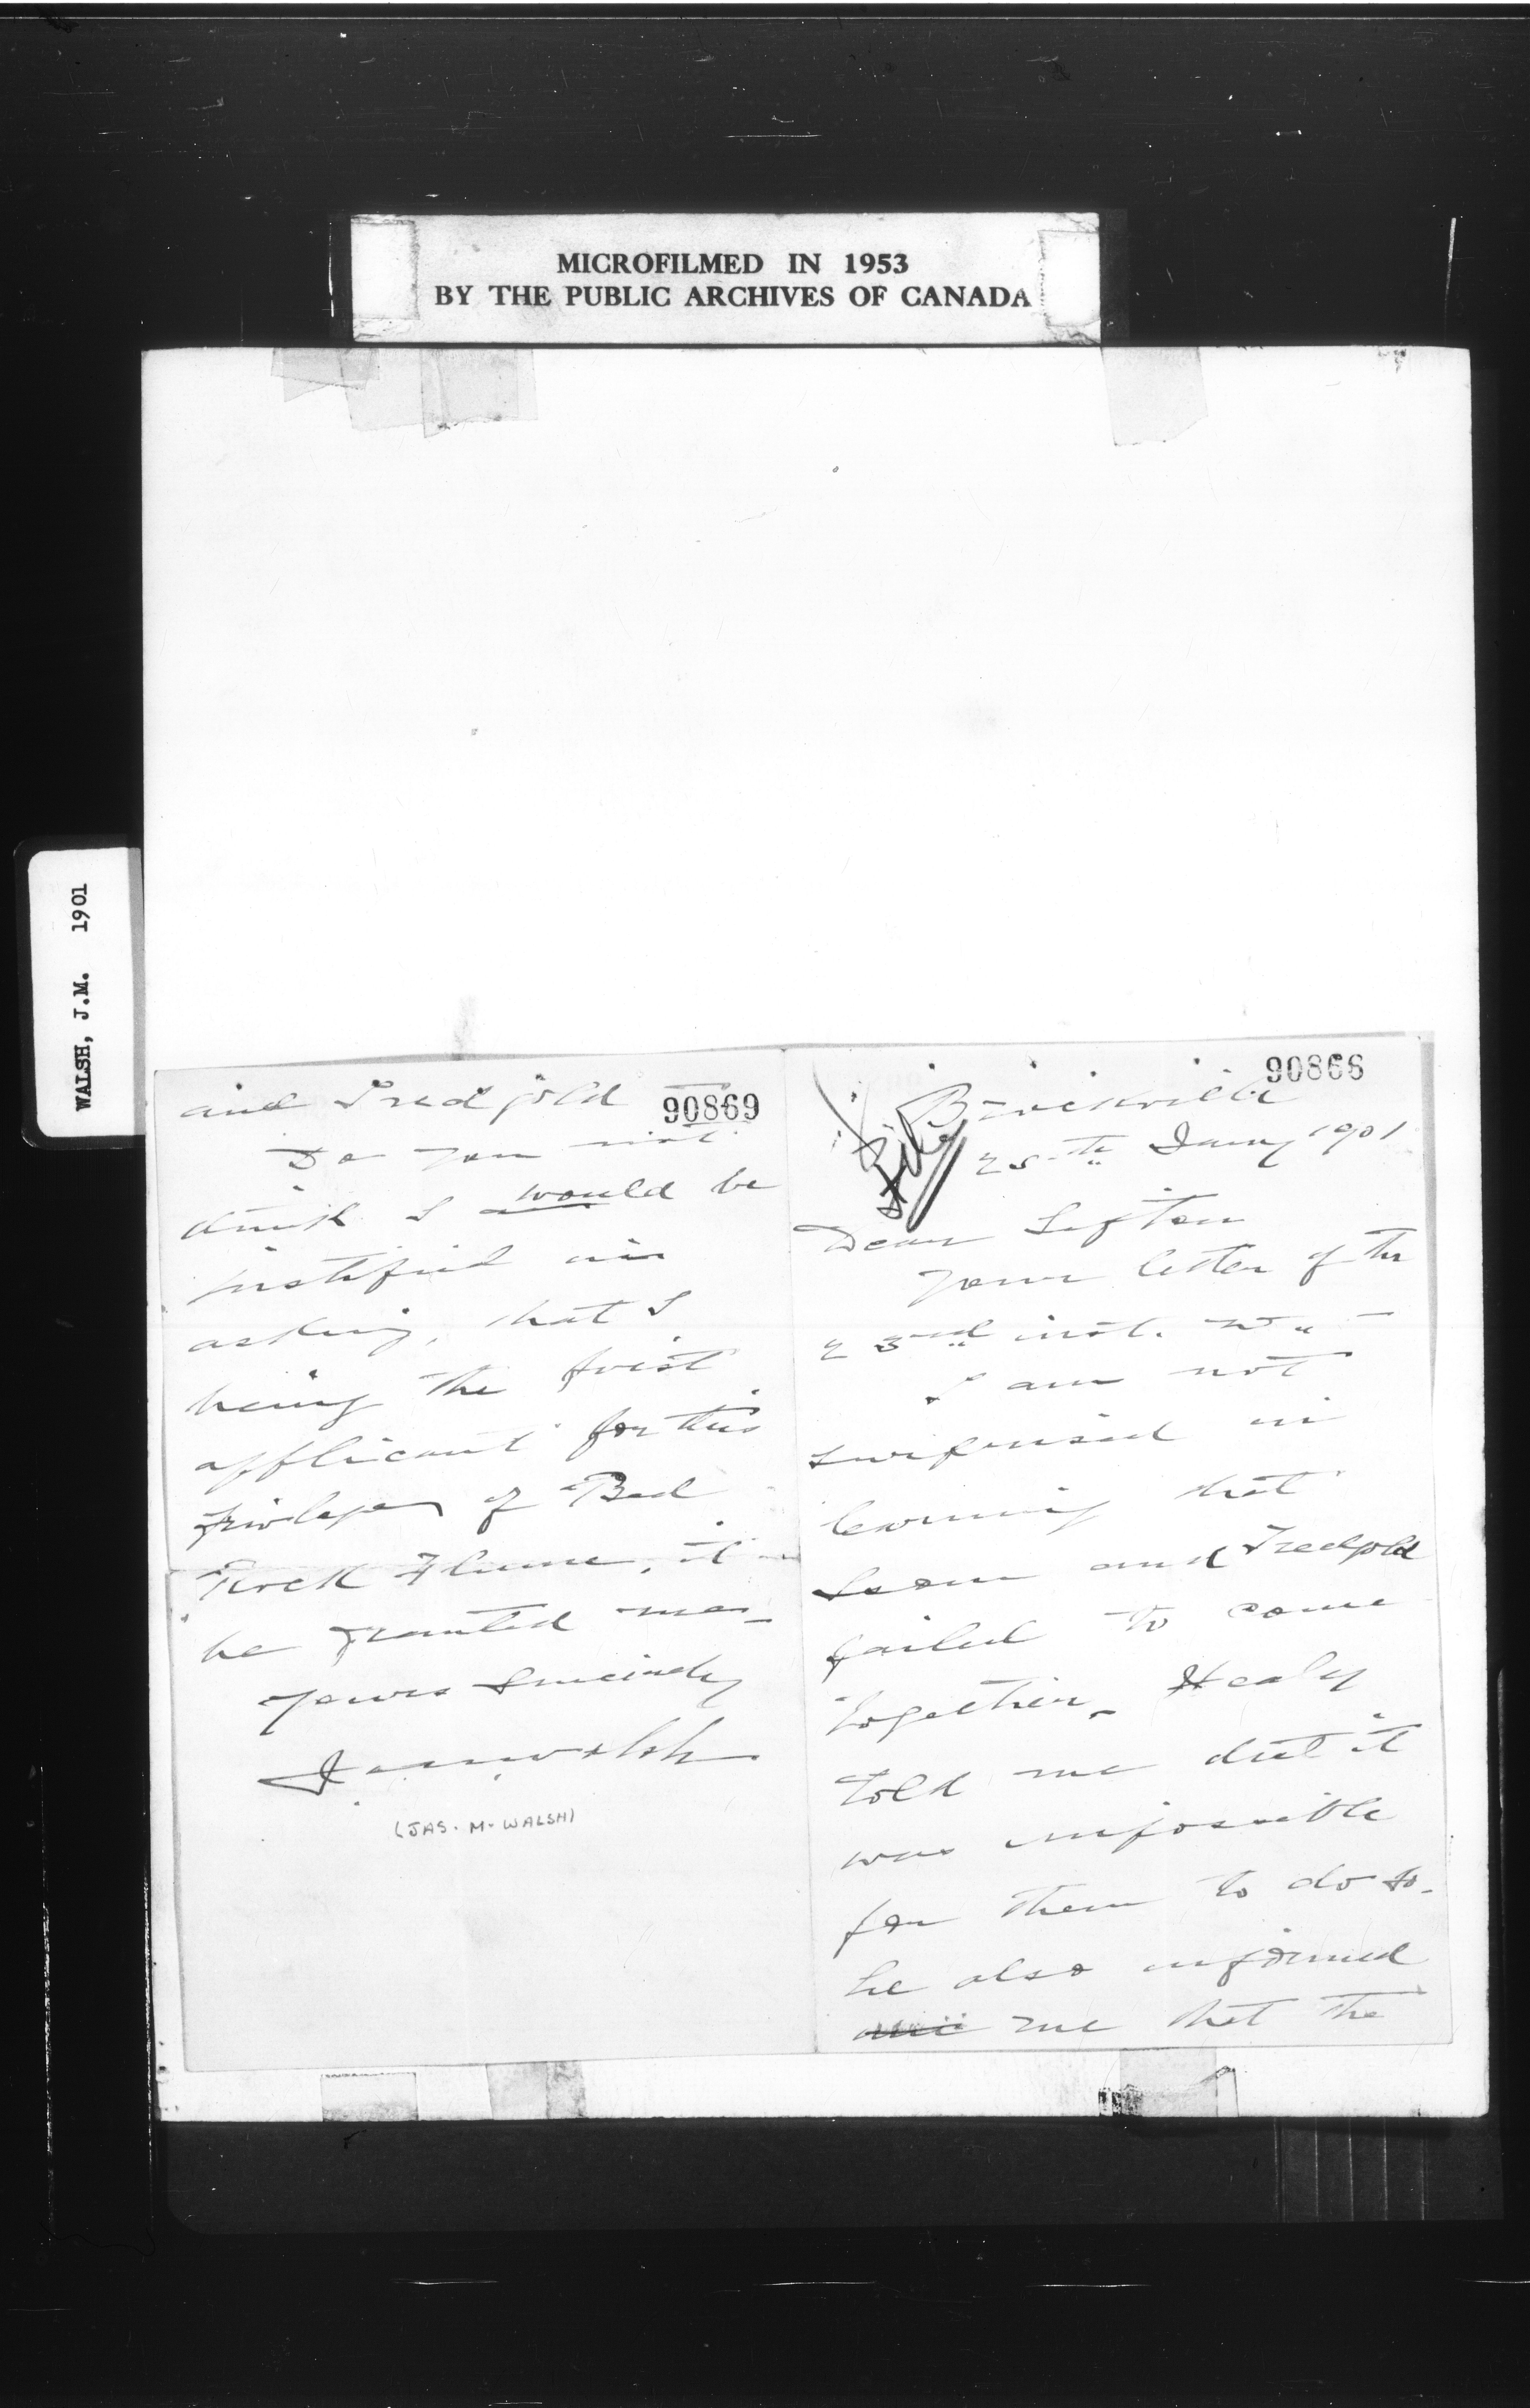 MICROFILMED IN 1953
BY THE PUBLIC ARCHIVES OF CANADA
WALSH, J.M. 1901
90869
and Treadgold
Do you not
think I would be
justified in
asking, that I
being the first
applicant for this
privilege of Bed
Rock Flume, it
be granted me—
Yours Sincerely
Jas M Walsh
(JAS. M. WALSH)
90866
File
Brockville
25th Jany 1901
Dear Sifton
Your letter of the
23rd inst.
I am not
surprised in
learning that
and Treadgold
failed to come
together. Healy
told me that it
was impossible
for them to do so.
he also informed
me that the